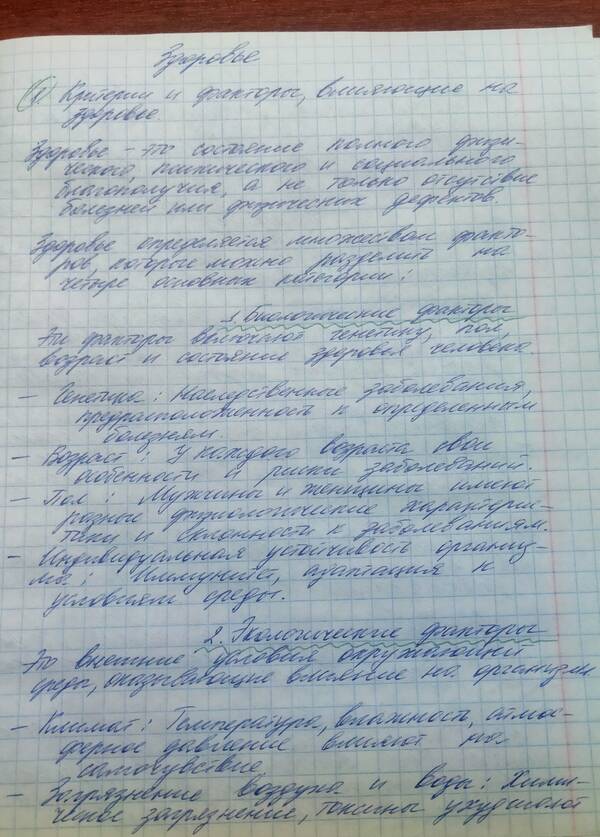 Здоровье
1. Критерии и факторы, влияющие на
здоровье.
Здоровье – это состояние полного физи-
ческого, психического и социального
благополучия, а не только отсутствие
болезней или физических дефектов.
Здоровье определяется множеством факто-
ров, которые можно разделить на
четыре основных категории:
1. Биологические факторы
Эти факторы включают генетику, пол,
возраст и состояние здоровья человека.
– Генетика: Наследственные заболевания,
предрасположенность к определенным
болезням.
– Возраст: У каждого возраста свои
особенности и риски заболеваний.
– Пол: Мужчины и женщины имеют
разные физиологические характерис-
тики и склонности к заболеваниям.
– Индивидуальная устойчивость организ-
ма: Иммунитет, адаптация к
условиям среды.
2. Экологические факторы
Это внешние условия окружающей
среды, оказывающие влияние на организм.
– Климат: Температура, влажность, атмос-
ферное давление влияют на
самочувствие
– Загрязнение воздуха и воды: Хими-
ческое загрязнение, токсины ухудшают